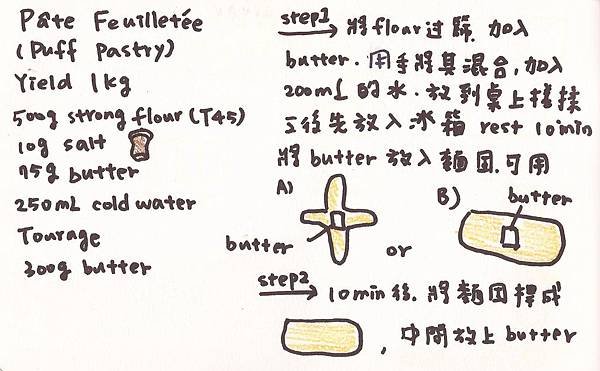 Pâte Feuilletée
(Puff Pastry)
Yield 1kg
500g strong flour (T45)
10g salt
75g butter
250mL cold water
Tourage
300g butter
step1 將flour过篩.加入
butter.用手將其混合,加入
200mL的水.放到桌上搓揉
之後先放入冰箱 rest 10min
將butter放入麵团.可用
A)
butter
or
B)
butter
step2 10min後.將麵团捍成
,中間放上butter